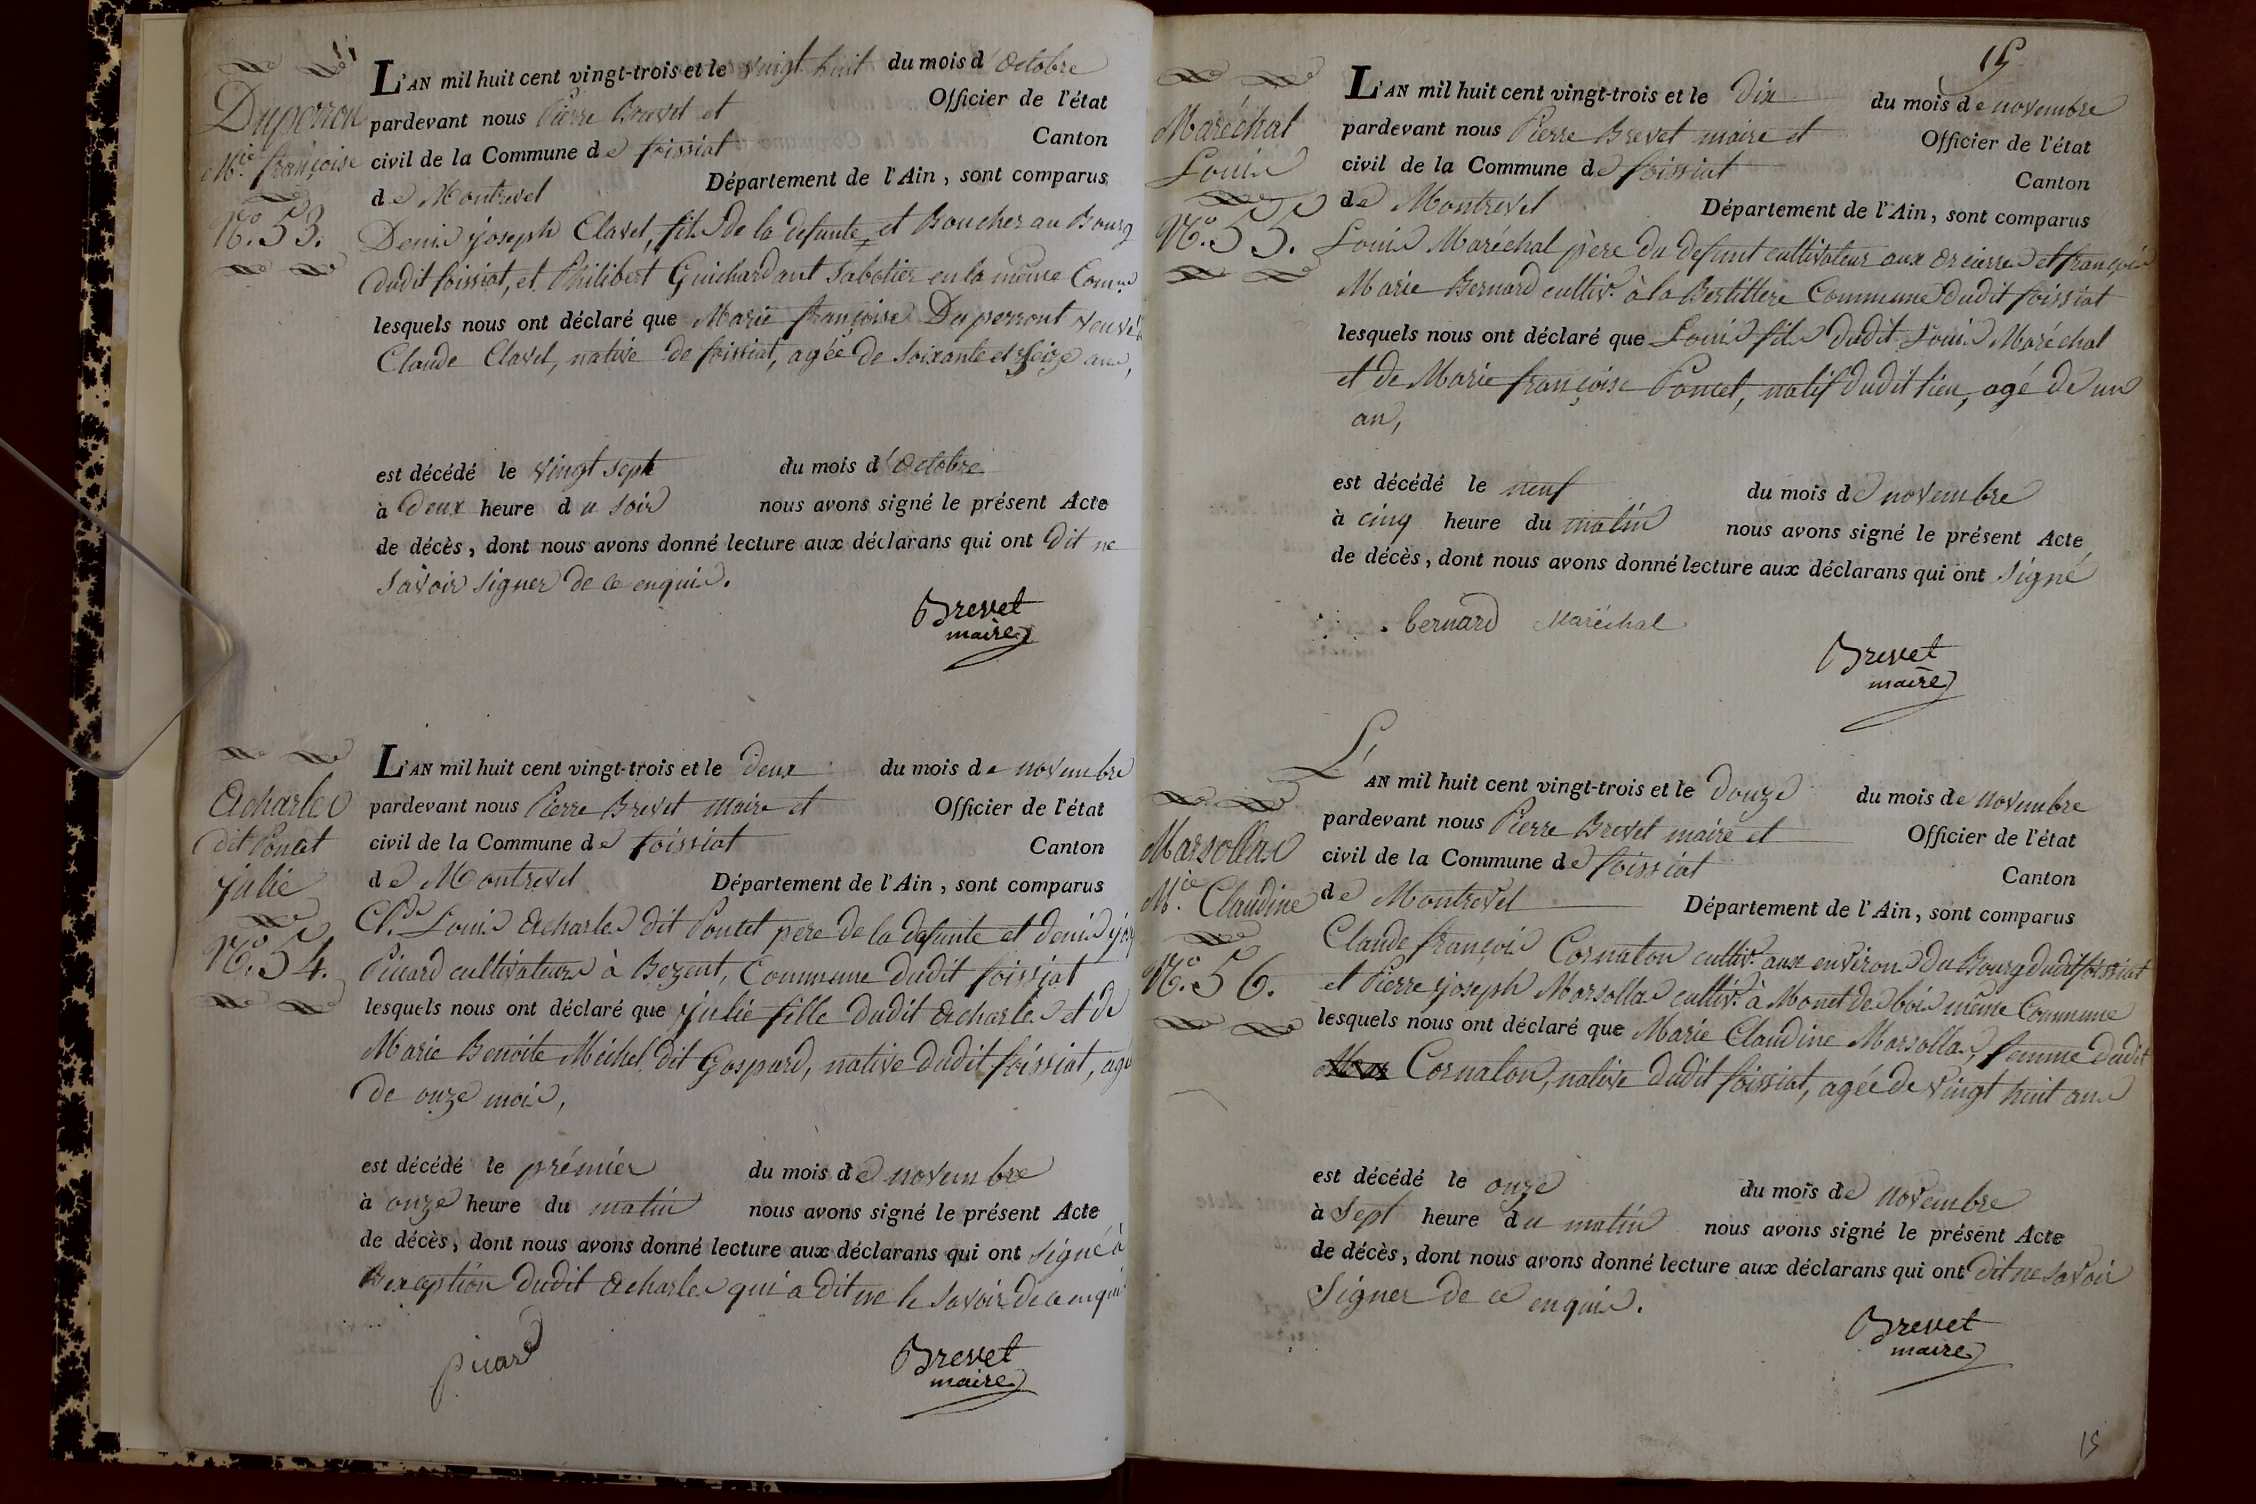 Duperron
M.ie françoise
N.o 53.
L'AN mil huit cent vingt-trois et le vingt huit du mois d'Octobre
pardevant nous Pierre Brevet et Officier de l'état
civil de la Commune de foissiat Canton
de Montrevel Département de l'Ain, sont comparus
Denis joseph Clavel, fils de la defunte et Boucher au Bourg
dudit foissiat, et Philibert Guichardant Sabotier en la même Com.ne
lesquels nous ont déclaré que Marie françoise Duperront veuve
Claude Clavel, native de foissiat, agée de Soixante et seize ans,
est décédé le vingt sept du mois d'Octobre
à Deux heure du soir nous avons signé le présent Acte
de décès, dont nous avons donné lecture aux déclarans qui ont dit ne
savoir signer de ce enquis.
Brevet
maire
Acharles
dit Poncet
julie
N.o 54.
L'AN mil huit cent vingt-trois et le deux du mois de novembre
pardevant nous Pierre Brevet maire et Officier de l'état
civil de la Commune de foissiat Canton
de Montrevel Département de l'Ain, sont comparus
Cl.de Louis Acharles dit Poncet pere de la defunte et denis
Picard cultivateurs à Bezent, Commune dudit foissiat
lesquels nous ont déclaré que julie fille dudit Acharles et de
Marie Benoite Michel dit Gaspard, native dudit foissiat, agé
de onze mois,
est décédé le prémier du mois de novembre
à onze heure du matin nous avons signé le présent Acte
de décès, dont nous avons donné lecture aux déclarans qui ont signé à
exception dudit Acharles qui a dit ne le savoir de ce enquis
picard
Brevet
maire
15
Maréchal
Louis
N.o 55.
L'AN mil huit cent vingt-trois et le dix du mois de novembre
pardevant nous Pierre Brevet maire et Officier de l'état
civil de la Commune de foissiat Canton
de Montrevel Département de l'Ain, sont comparus
Louis Maréchal père du defunt cultivateur aux Orcières et françois
Marie Bernard cultiv.r à la Bertillere Commune dudit foissiat
lesquels nous ont déclaré que Louis fils dudit Louis Maréchal
et de Marie françoise Poncet, natif dudit lieu, agé de un
an,
est décédé le neuf du mois de novembre
à cinq heure du matin nous avons signé le présent Acte
de décès, dont nous avons donné lecture aux déclarans qui ont signé
bernard Maréchal
Brevet
maire
Marsollas
M.ie Claudine
N.o 56.
L'AN mil huit cent vingt-trois et le douze du mois de novembre
pardevant nous Pierre Brevet maire et Officier de l'état
civil de la Commune de foissiat Canton
de Montrevel Département de l'Ain, sont comparus
Claude françois Cornaton cultiv.r aux environs du Bourg dudit foissiat
et Pierre joseph Marsollas cultiv.r à Monet de bois même Commune
lesquels nous ont déclaré que Marie Claudine Marsollas, femme dudit
Cornaton, native dudit foissiat, agée de vingt huit ans
est décédé le onze du mois de novembre
à Sept heure du matin nous avons signé le présent Acte
de décès, dont nous avons donné lecture aux déclarans qui ont dit ne savoir
Signer de ce enquis.
Brevet
maire
15